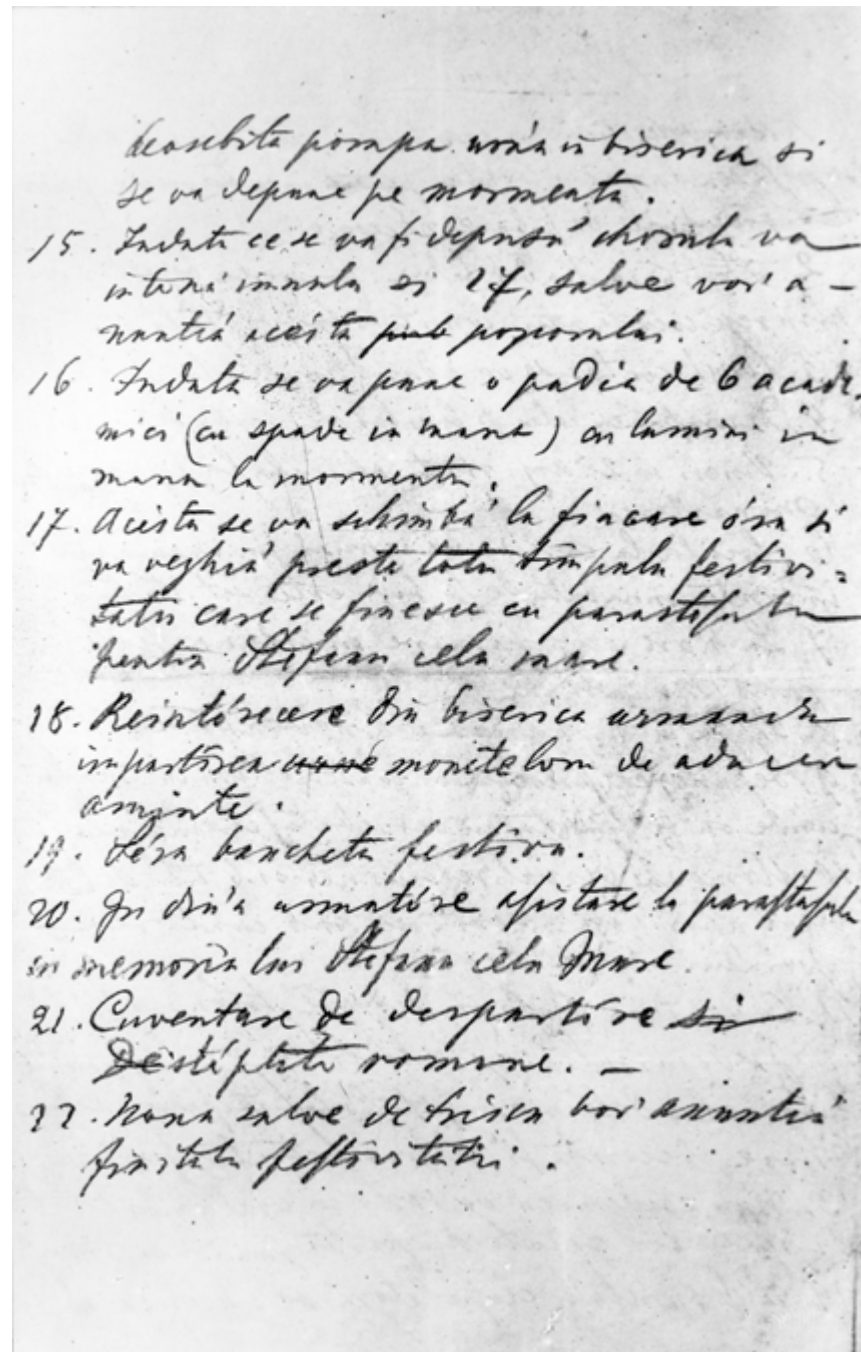 deosebita pompa urn'a in biserica si
se va depune pe mormentu.
15. Indata ce se va fi depusu chorulu va
intoná imnulu si 17, salve vor' a-
nuntiá acést'a poporului.
16. Indata se va pune o padia de 6 acade-
mici (cu spade in mana) cu lumini in
mana la mormentu.
17. Acésta se va schimbá la fiacare óra si
va veghiá preste totu timpulu festivi=
tatii care se finescu cu parastasulu
pentru Stefanu celu mare.
18. Reintórecere din biserica urmandu
impartirea monetelor de aducere
aminte.
19. Sér'a banchetu festivu.
20. In diu'a urmatóre asistare la parastasulu
in memoria lui Stefanu celu Mare.
21. Cuventare de despartíre si
Destéptate romane. —
22. Noua salve de trеscu vor' anuntiá
finitulu festivitatii.